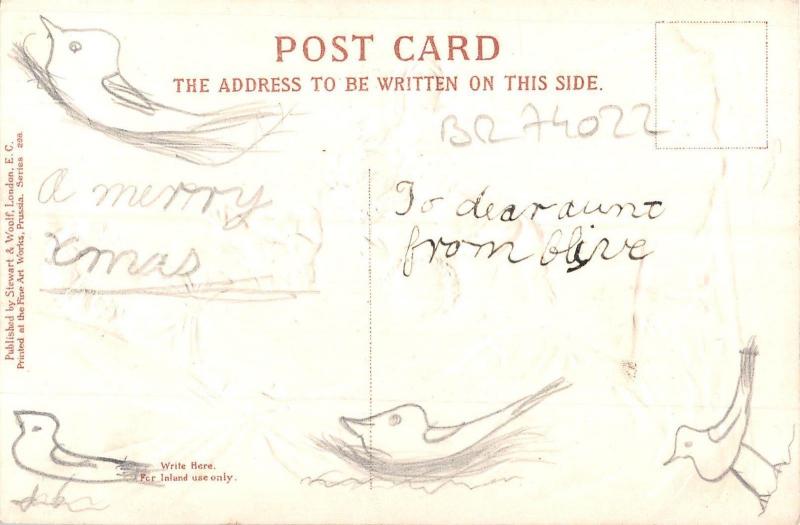 POST CARD
THE ADDRESS TO BE WRITTEN ON THIS SIDE.
BR 74022
A merry
xmas
To dear aunt
from Olive
Published by Stewart & Woolf, London, E. C.
Printed at the Fine Art Works, Prussia. Series 298
Write Here.
For Inland use only.